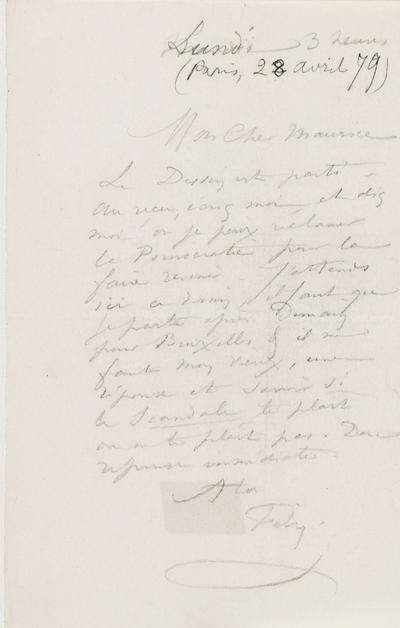 Lundi 3 heures
(Paris, 28 avril 79)
Mon Cher Maurice
Le Dessin est parti
au reçu, écris moi et dis
moi où je peux réclamer
la Pornocratie pour la
faire revenir. J'attends
ici ce dessin, il faut que
je parte après Demain
pour Bruxelles & il me
faut mon vieux, une
réponse et savoir si
le Scandale te plait
ou ne te plait pas. Donc
réponse immédiate
A toi
Fély.